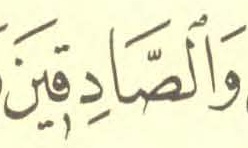 وَٱلصَّادِقِينَ